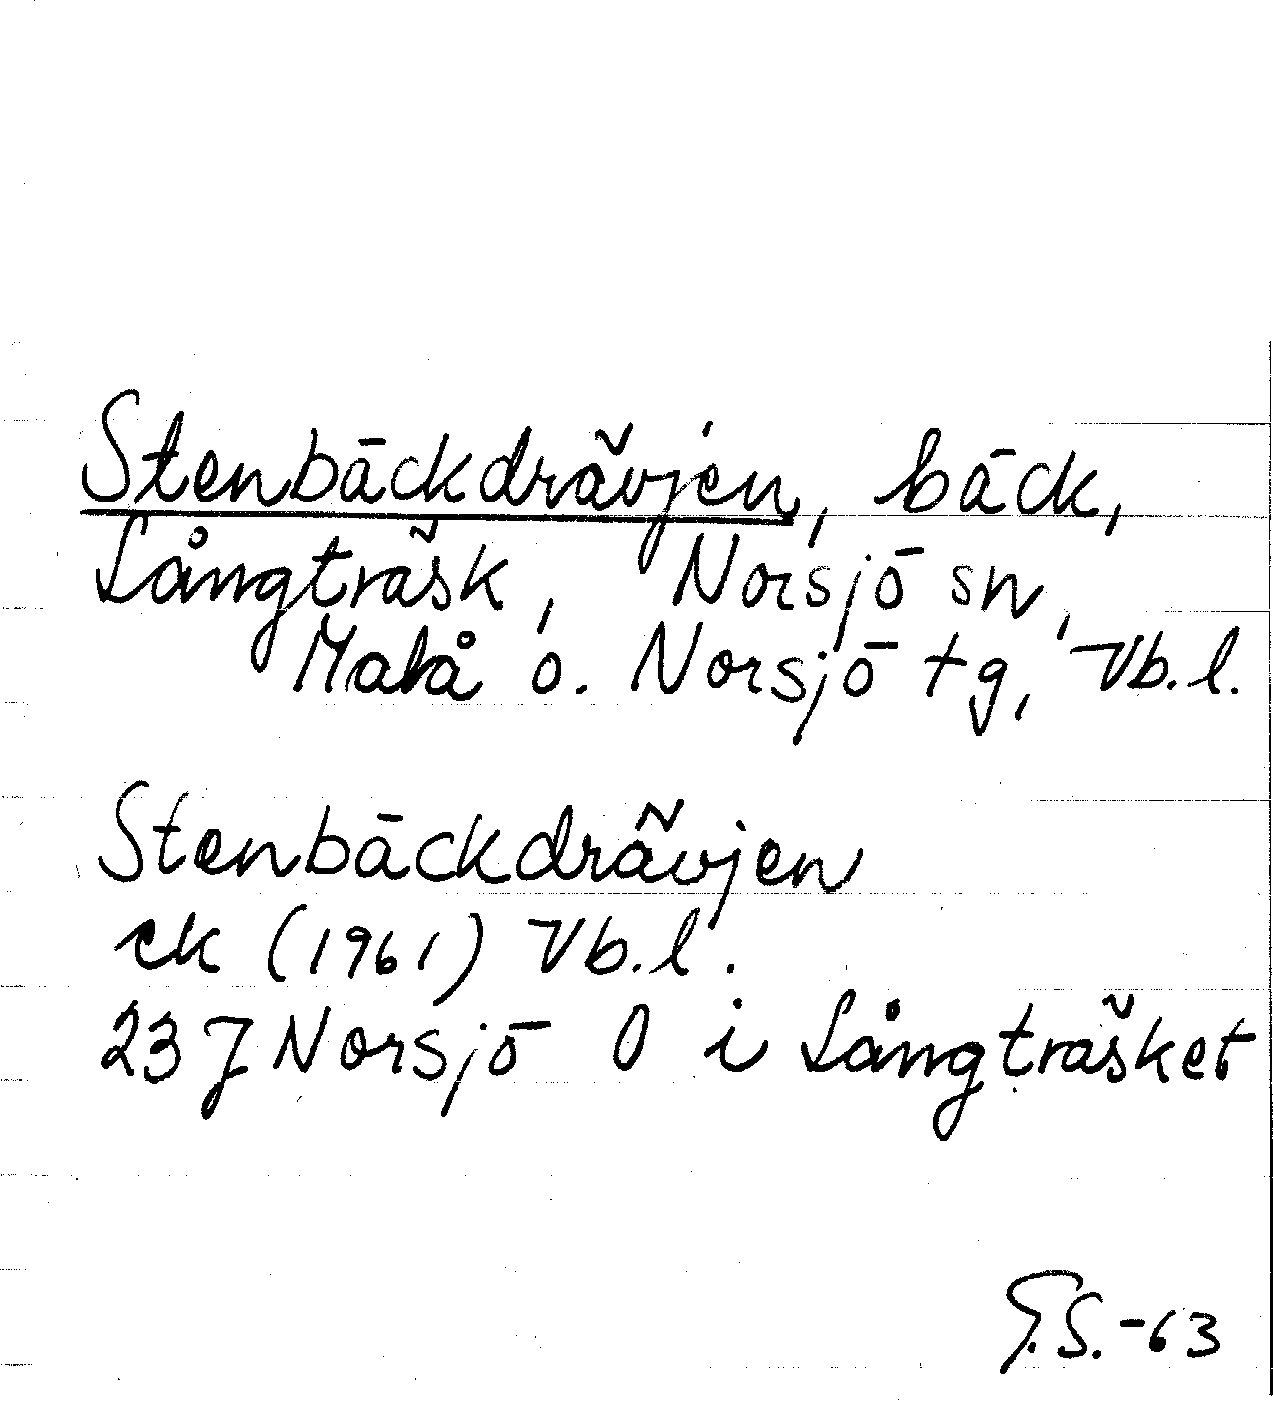 Stenbäckdrävjen, bäck,
Långträsk, Norsjö sn,
Malå o. Norsjö tg, Vb.l.
Stenbäckdrävjen
ek (1961) Vb.l.
23 J Norsjö O i Långträsket
G.S.-63